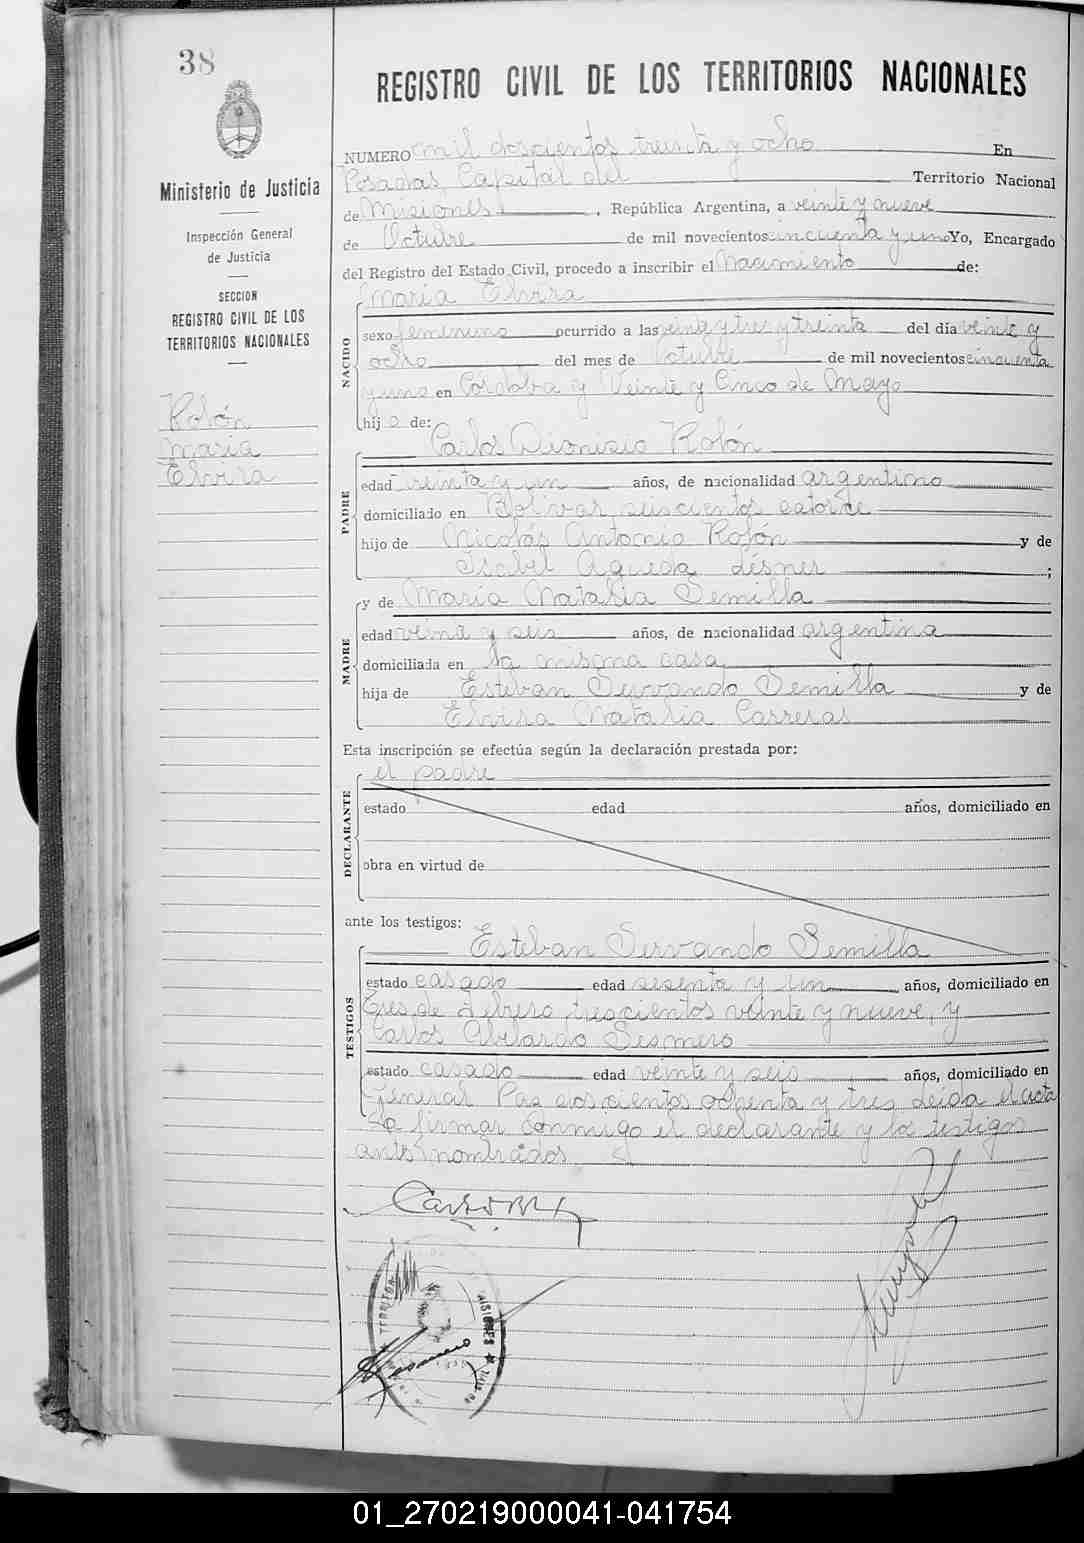 38
REGISTRO CIVIL DE LOS TERRITORIOS NACIONALES
Ministerio de Justicia
Inspección General
de Justicia
SECCION
REGISTRO CIVIL DE LOS
TERRITORIOS NACIONALES
Rolón
Maria
Elvira
NUMERO mil doscientos treinta y ocho En
Posadas Capital del Territorio Nacional
de Misiones, República Argentina, a veinte y nueve
de Octubre de mil novecientos cincuenta y uno Yo, Encargado
del Registro del Estado Civil, procedo a inscribir el Nacimiento de:
María Elvira
NACIDO
sexo femenino ocurrido a las veinte y tres y treinta del día veinte y
ocho del mes de Octubre de mil novecientos cincuenta
y uno en Córdoba y Veinte y Cinco de Mayo
hija de:
Carlos Dionisio Rolón
PADRE
edad treinta y un años, de nacionalidad argentino
domiciliado en Bolivar seiscientos catorce
hijo de Nicolás Antonio Rolón y de
Isabel Agueda ;
y de María Natalia Semilla
MADRE
edad veint y seis años, de nacionalidad argentina
domiciliada en la misma casa
hija de Esteban Servando Semilla y de
Elvira Natalia Carreras
Esta inscripción se efectúa según la declaración prestada por:
el padre
DECLARANTE
estado edad años, domiciliado en
obra en virtud de
ante los testigos:
Esteban Servando Semilla
TESTIGOS
estado casado edad sesenta y un años, domiciliado en
Tres de Febrero trescientos veinte y nueve, y
Carlos Abelardo Ledesmero
estado casado edad veinte y seis años, domiciliado en
General Paz doscientos ochenta y tres Leída el acta
la firman conmigo el declarante y los testigos
antes nombrados
TERRITORIO
MISIONES
01_270219000041-041754